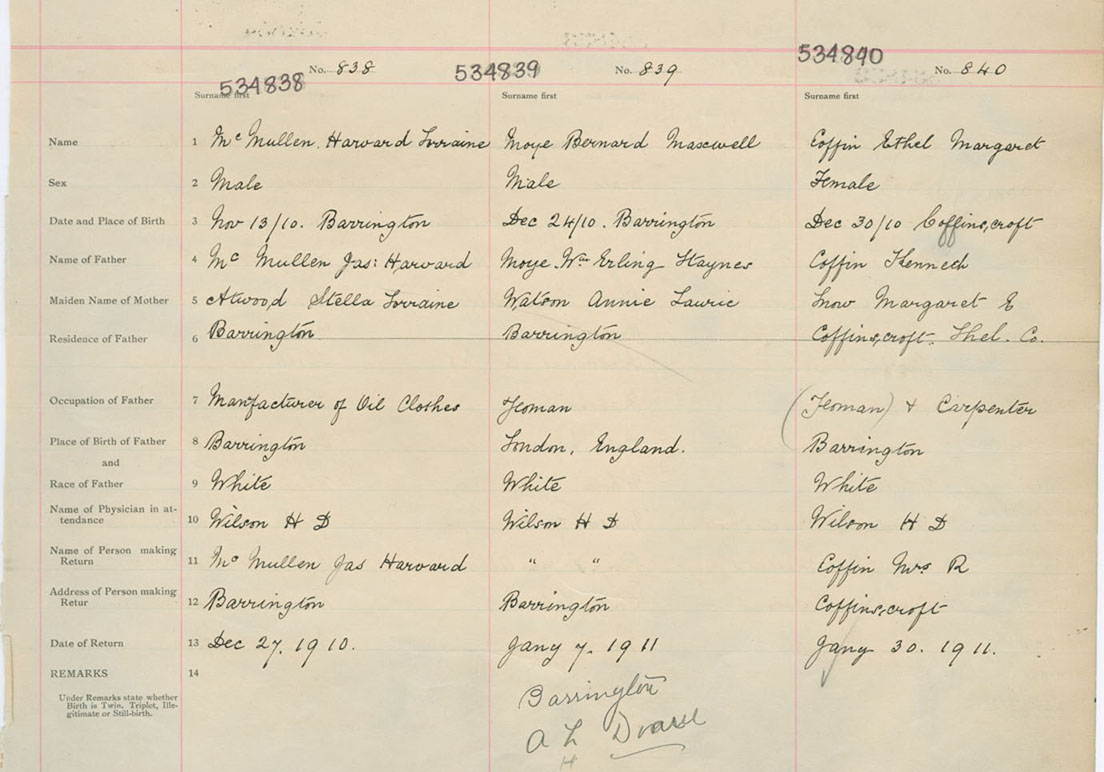 534838 No. 838 534839 No. 839 534840 No. 840
Surname first Surname first Surname first
Name 1 Mc Mullen Harvard Lorraine Moye Bernard Maxwell Coffin Ethel Margaret
Sex 2 Male Male Female
Date and Place of Birth 3 Nov 13/10. Barrington Dec 24/10. Barrington Dec 30/10 Coffinscroft
Name of Father 4 Mc Mullen Jas: Harvard Moye Wm Erling Haynes Coffin Kenneth
Maiden Name of Mother 5 Atwood Stella Lorraine Watson Annie Laurie Snow Margaret E
Residence of Father 6 Barrington Barrington Coffinscroft. Shel. Co.
Occupation of Father 7 Manfacturer of Oil Clothes Yeoman (Yeoman) + Carpenter
Place of Birth of Father 8 Barrington London, England. Barrington
and
Race of Father 9 White White White
Name of Physician in at-
tendance 10 Wilson H D Wilson H D Wilson H D
Name of Person making
Return 11 Mc Mullen Jas Harvard " " Coffin Mrs R
Address of Person making
Retur 12 Barrington Barrington Coffinscroft
Date of Return 13 Dec 27, 1910. Jany 7. 1911 Jany 30. 1911.
REMARKS 14
Under Remarks state whether
Birth is Twin, Triplet, Ille-
gitimate or Still-birth.
Barrington
A L
H